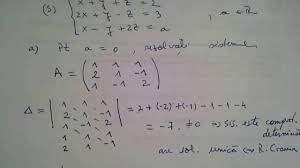 (S) { x + y + z = 2
2x + y - z = 3 , a ∈ ℝ
x - y + 2z = a
a) Pt a = 0, rezolvați sistemul
A = ( 1 1 1
2 1 -1
1 -1 2 )
Δ = | 1 1 1
2 1 -1
1 -1 2 | = 2 + (-2) + (-1) - 1 - 1 - 4
1 1 1
2 1 -1
= -7 ≠ 0 ⇒ sis. este compat. determinat
are sol. unică ⇒ R. Cramer